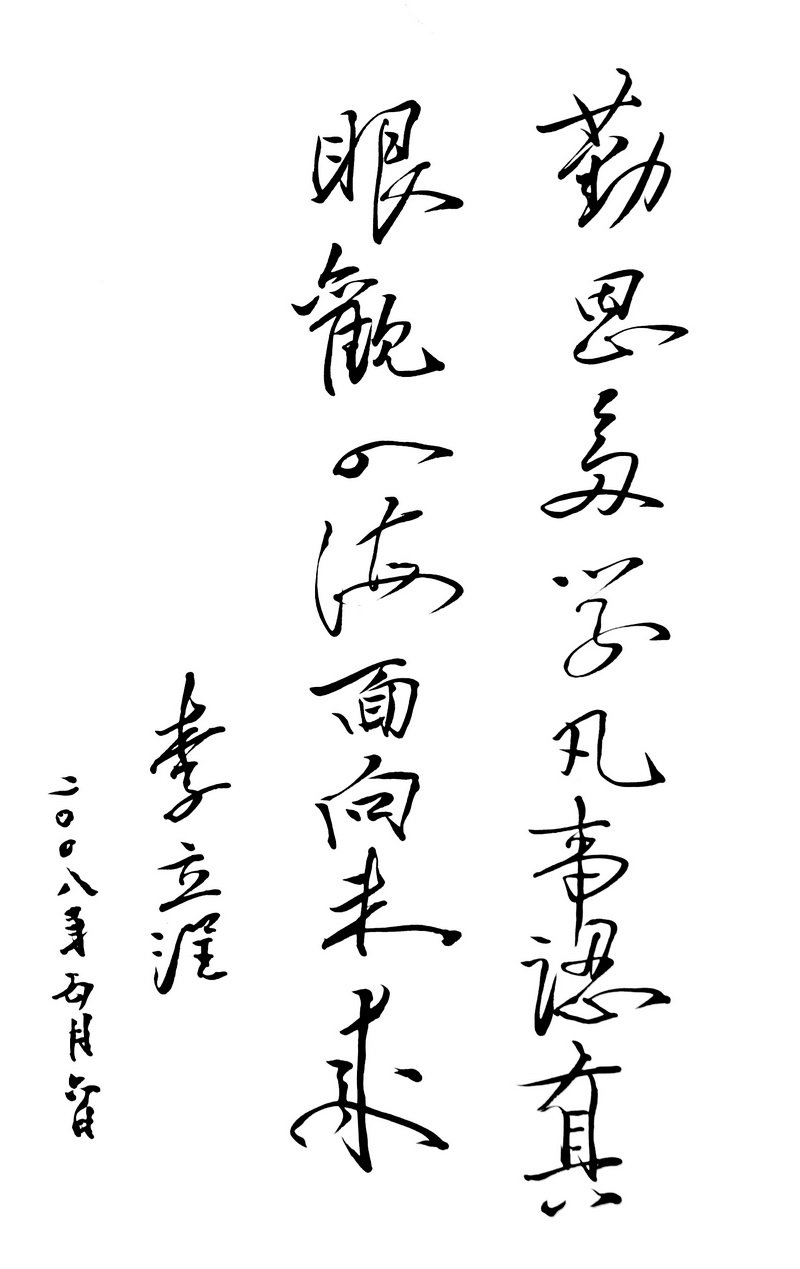 勤思多学凡事認真
眼觀四海面向未来
李立浧
二〇〇八年五月六日